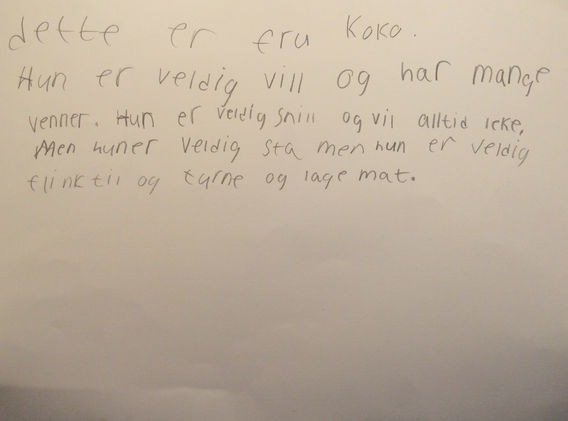 dette er fru Koko.
Hun er veldig vill og har mange
venner. Hun er veldig snill og vil alltid leke,
Men huner veldig sta men hun er veldig
flink til og turne og lage mat.